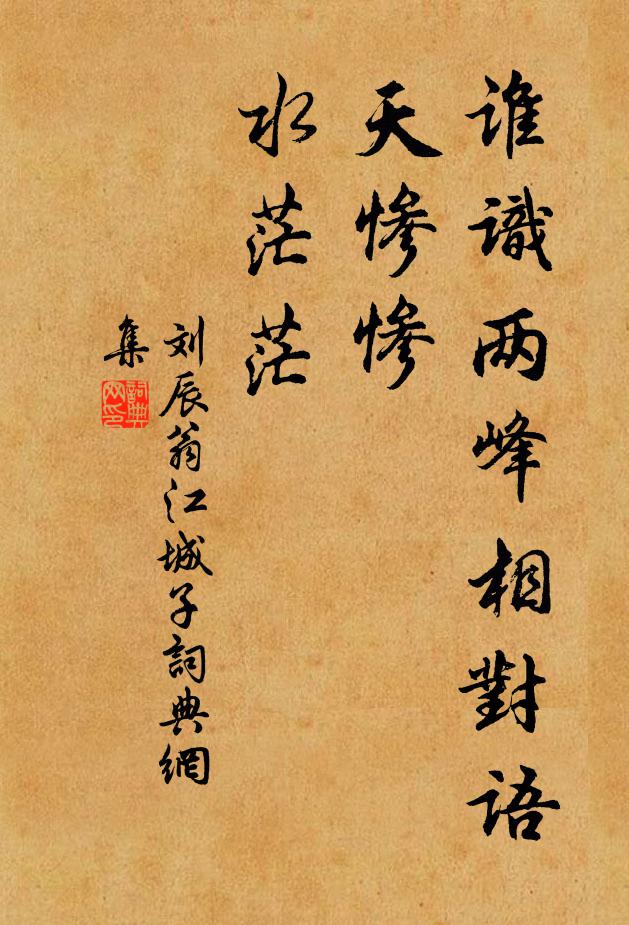 谁識两峰相對語
天惨惨
水茫茫
刘辰翁江城子詞典網
集
詞典
网印